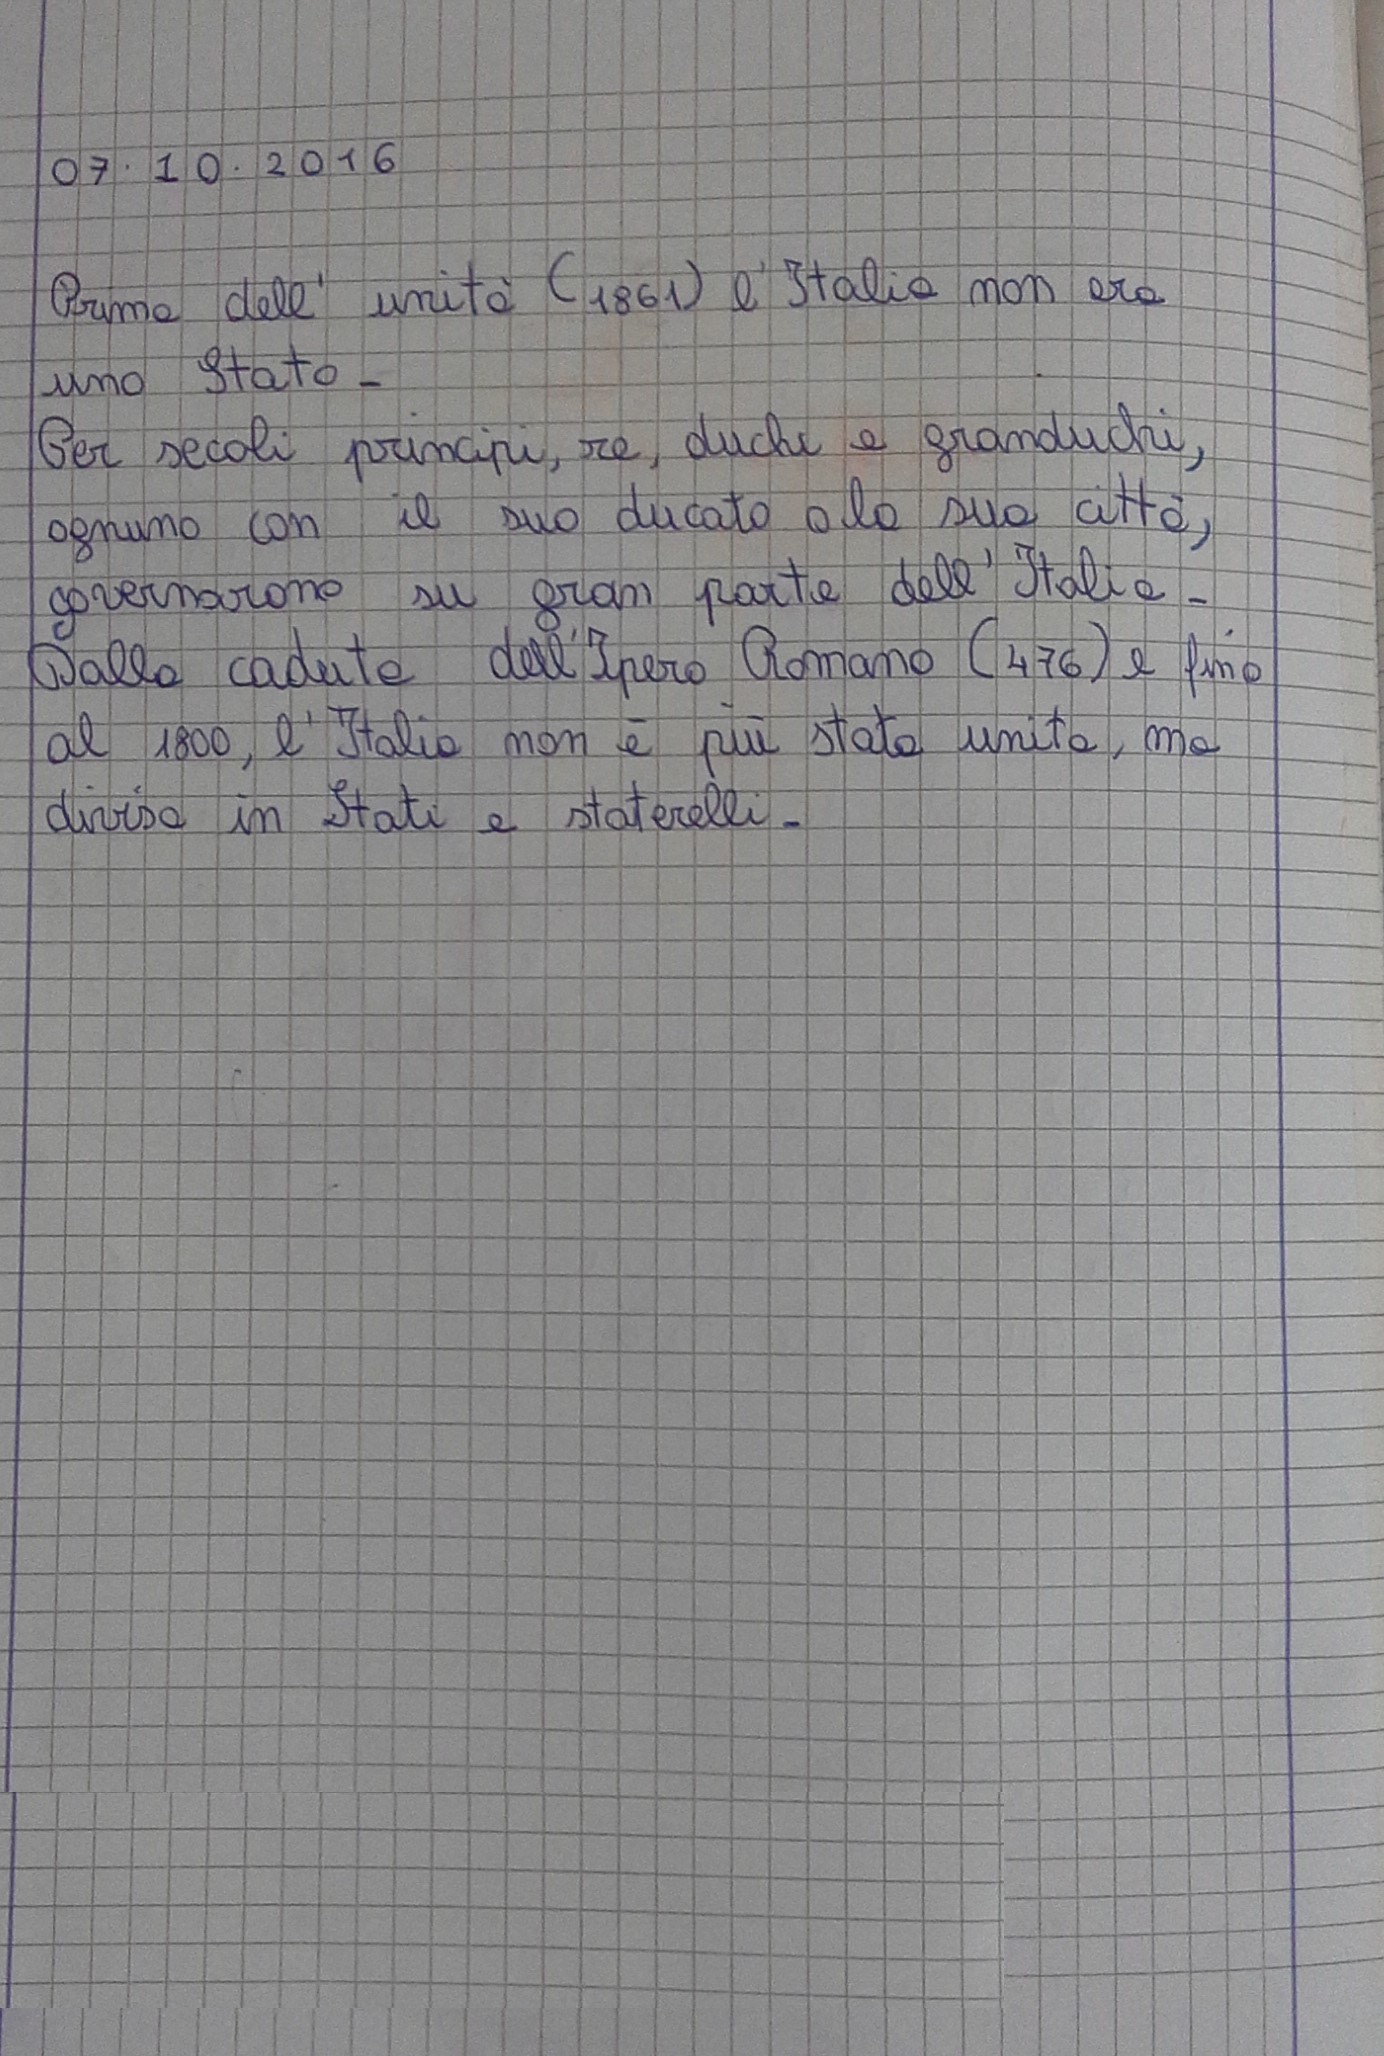 07.10.2016
Prima dell'unità (1861) l'Italia non era
uno Stato.
Per secoli principi, re, duchi e granduchi,
ognuno con il suo ducato o la sua città,
governarono su gran parte dell'Italia.
Dalla caduta dell'Ipero Romano (476) e fino
al 1800, l'Italia non è più stata unita, ma
divisa in Stati e staterelli.